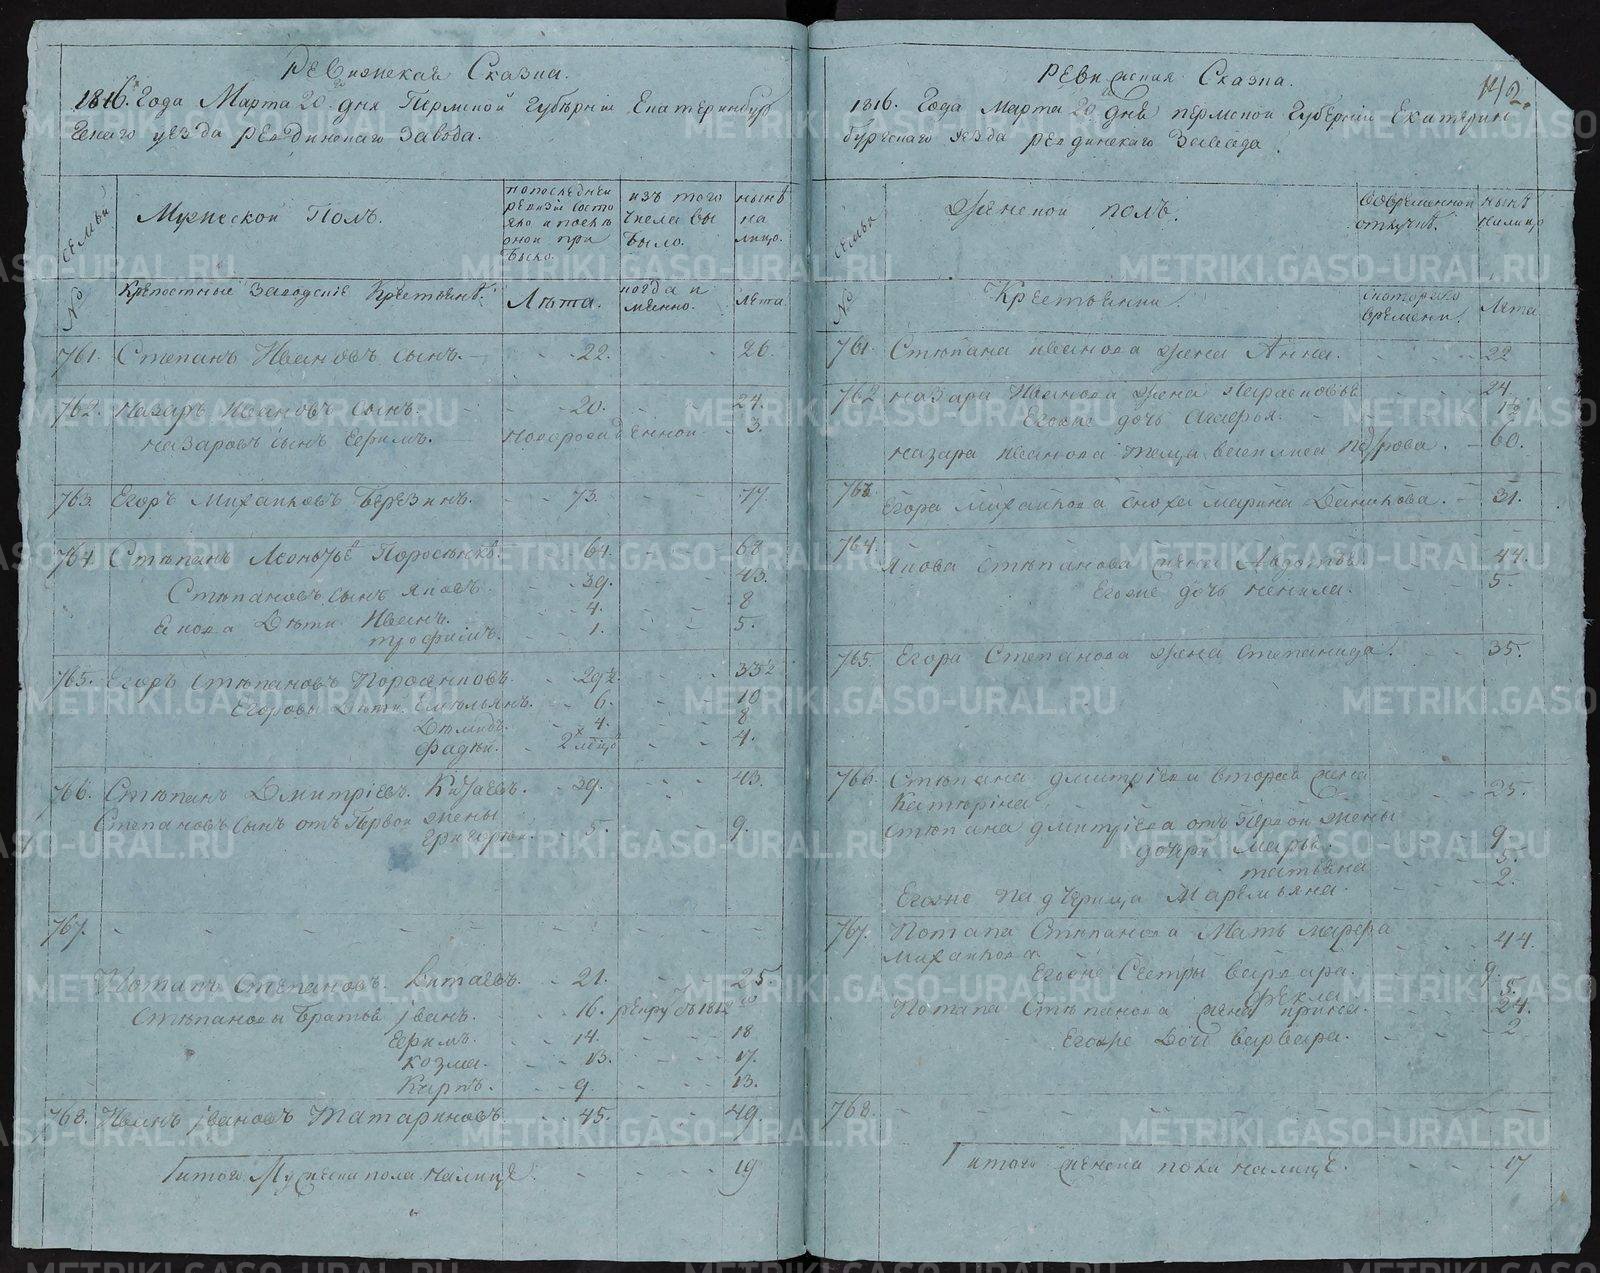 Ревижская Сказка.
1816. Года Марта 20 дня Пермской Губернiи Екатеринбур
гскаго уезда Ревдинскаго Завода.
№ семьи
Мужеской Полъ.
по последней ревизiи состояло и после оной прибыло
изъ того числа выбыло.
ныне на лицо.
Крепостные Заводскiе Крестьяне.
Лѣта.
когда имянно.
лета
761. Степанъ Ивановъ сынъ. 22. 26.
762. Назаръ Ивановъ сынъ. 20. 24.
Назаровъ сынъ Ефимъ. новорожденной 3.
763. Егоръ Михайловъ Березинъ. 73. 77.
764. Стѣпанъ Леонтьевъ 64. 68
Стѣпановъ сынъ Яковъ. 39. 43.
Якова Дѣти Иванъ. 4. 8
трофимъ. 1. 5.
765. Егоръ Стѣпановъ Поросенковъ. 29½ 33½
Егоровы Дѣти Емельянъ. 6. 10
Демидъ. 4. 8
Фадѣй. 4.
766. Стѣпанъ Дмитрiевъ 39. 43.
Степановъ сынъ отъ Первой жены
Григорiй. 5. 9.
767.
Потапъ Степановъ 21. 25
Стѣпановы братья iванъ. 16. рекру въ 1812
Ефимъ. 14. 18
козма. 13. 17.
9. 13.
768. Иванъ iвановъ Татариновъ 45. 49.
итого Мужеска пола налице. 19
142.
Ревижская Сказка.
1816. Года Марта 20 дня пермской Губернiи Екатерин
бургскаго уезда ревдинскаго Завода
№ семьи
Женской полъ.
Во временной отлучке.
ныне налицо
Крестьянки.
с котораго времени.
Лета
761. Стѣпана иванова жена Анна. 22
762 назара Иванова жена Парасковья 24.
Егоже дочь 1½
назара иванова теща василиса Петрова. 60.
763 Егора михайлова сноха марина Данилова. 31.
764. Якова стѣпанова жена Авдотья. 44.
Егоже дочь ненила. 5.
765. Егора Степанова жена степанида. 35.
766. Стѣпана дмитрiева вторая жена
Катерина 25.
Стѣпана дмитрiева отъ Первой жены
дочери Марья 9
татьяна 5.
Егоже падчерица Маремьяна. 2.
767. Потапа Стѣпанова Мать марфа
михайлова 44.
Егоже Сестры варвара. 9.
фекла 5.
Потапа Стѣпанова жена ирина. 24.
Егоже Дочь варвара. 2
768.
итого женска пола налице. 17
METRIKI.GASO-URAL.RU